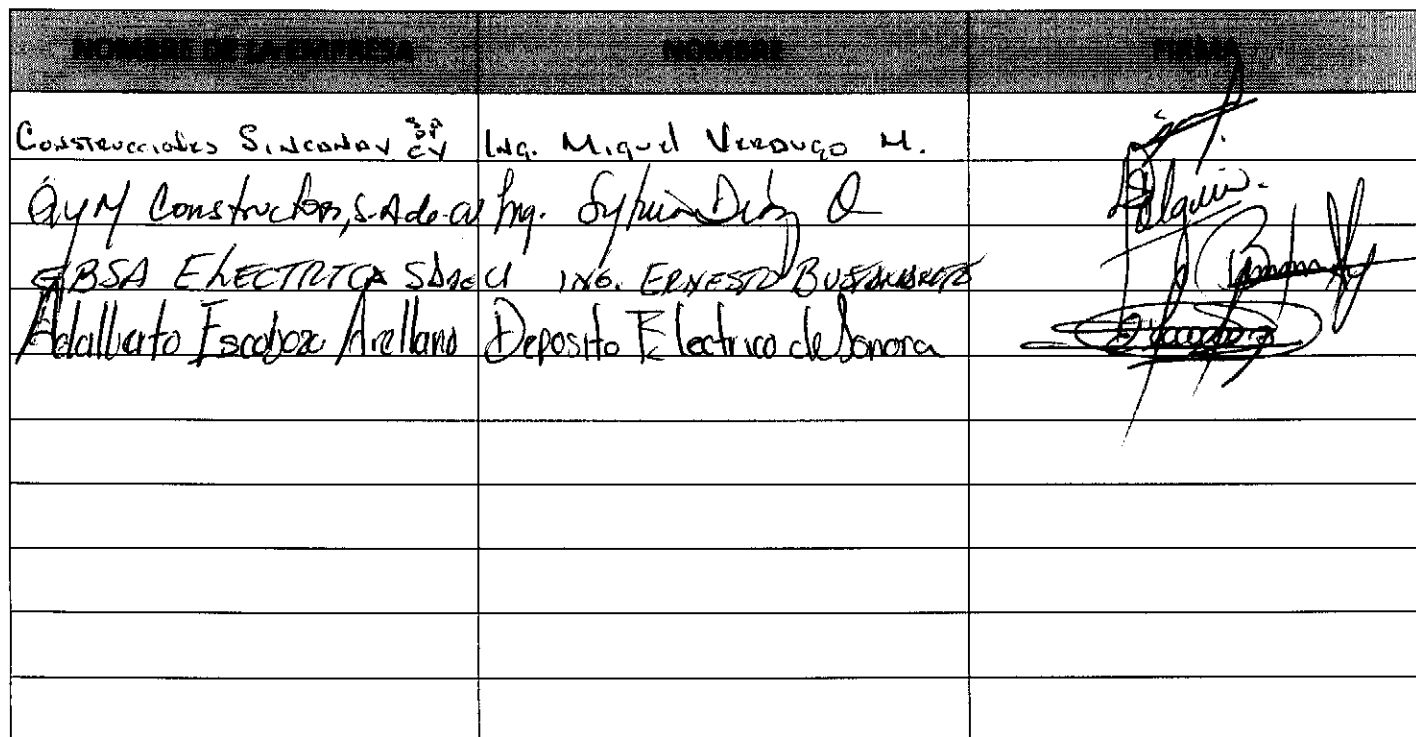 NOMBRE DE LA EMPRESA NOMBRE FIRMA
Construcciones Sinconav SA DE CV Ing. Miguel Verdugo M.
AyM Constructora, S.A de CV Ing. Sylvia Díaz O
BSA ELECTRICA SA de CV ING. ERNESTO BUSTAMANTE
Adalberto Escoboza Arellano Deposito Electrico de Sonora